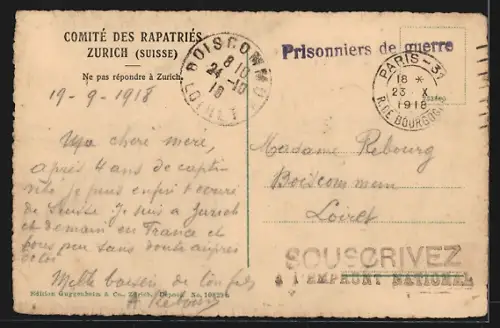 COMITÉ DES RAPATRIÉS
ZURICH (SUISSE)
Ne pas répondre à Zurich.
19-9-1918
Ma chere mere,
après 4 ans de captivi
vité je puis enfin t'
de Suisse Je suis a Zurich
et demain en France et
sans doute aupres
de toi
Mille baisers de ton fils
A Rebourg
Edition Guggenheim & Co., Zürich, Dépose. No.
BOISCOMMUN
8 10
24-10
18
LOIRET
Prisonniers de guerre
PARIS-37
18 *
23 X
1918
R. DE BOURGOGNE
Madame Rebourg
Boiscommun
Loiret
SOUSCRIVEZ
à l'EMPRUNT NATIONAL